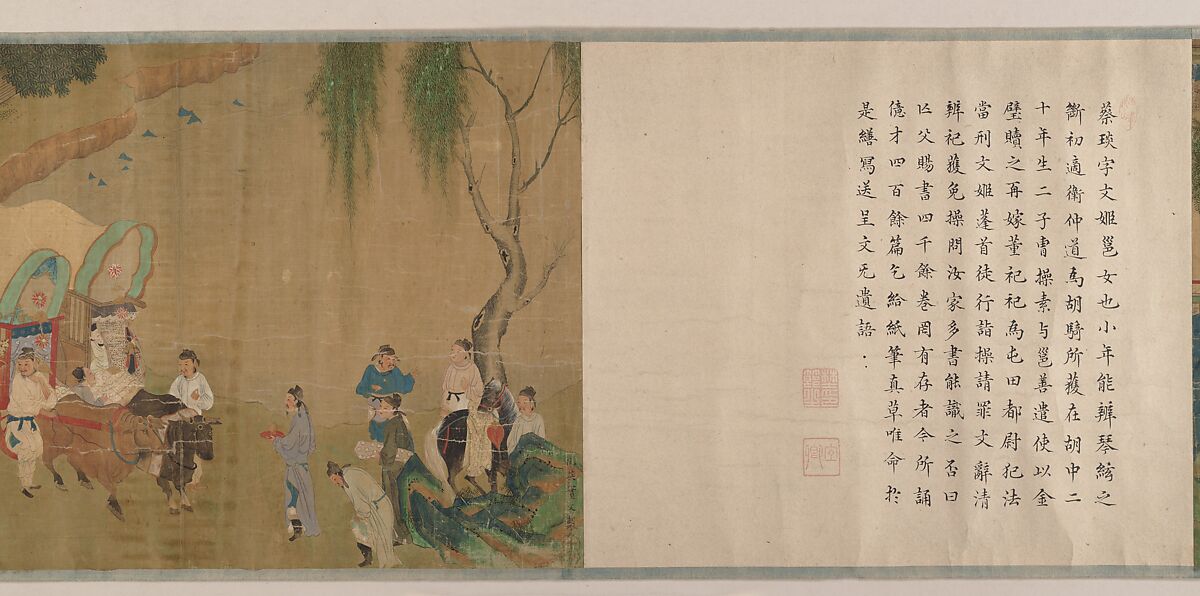 蔡琰字文姬邕女也小年能辨琴絃之
斷初適衛仲道為胡騎所獲在胡中二
十年生二子曹操素与邕善遣使以金
璧贖之再嫁董祀祀為屯田都尉犯法
當刑文姬蓬首徒行詣操請罪文辭清
辨祀獲免操問汝家多書能識之否曰
亾父賜書四千餘卷罔有存者今所誦
億才四百餘篇乞給紙筆真草唯命於
是繕寫送呈文无遺語